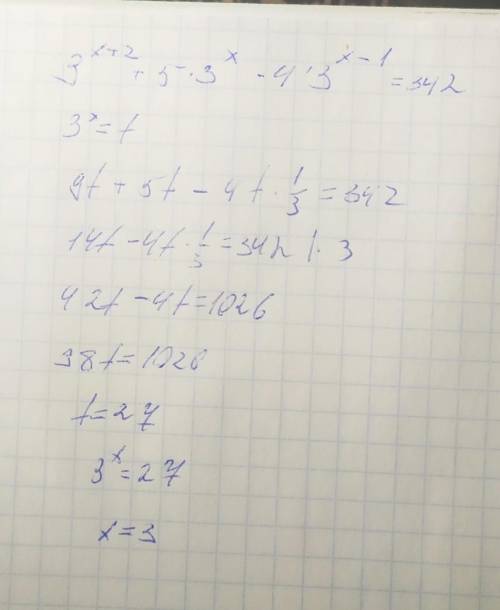 3^{x+2} + 5·3^x - 4·3^{x-1} = 342
3^x = t
9t + 5t - 4t · 1/3 = 342
14t - 4t · 1/3 = 342 |· 3
42t - 4t = 1026
38t = 1026
t = 27
3^x = 27
x = 3